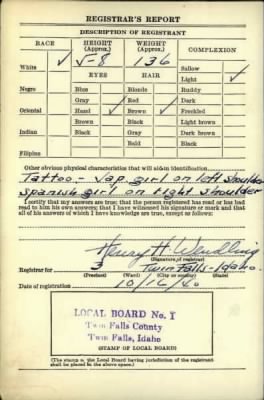 REGISTRAR'S REPORT
DESCRIPTION OF REGISTRANT
RACE HEIGHT (Approx.) WEIGHT (Approx.) COMPLEXION
White ✓ 5-8 136 Sallow
EYES HAIR Light ✓
Negro Blue Blonde Ruddy
Gray ✓ Red Dark
Oriental Hazel Brown ✓ Freckled
Brown Black Light brown
Indian Black Gray Dark brown
Bald Black
Filipino
Other obvious physical characteristics that will aid in identification
Tattoo - Jap girl on left shoulder
Spanish girl on right shoulder
I certify that my answers are true; that the person registered has read or has had
read to him his own answers; that I have witnessed his signature or mark and that
all of his answers of which I have knowledge are true, except as follows:
Henry H. Wendling
(Signature of registrar)
Registrar for 3 Twin Falls - Idaho.
(Precinct) (Ward) (City or county) (State)
Date of registration 10/16/40
LOCAL BOARD No. 1
Twin Falls County
Twin Falls, Idaho
(STAMP OF LOCAL BOARD)
(The stamp of the Local Board having jurisdiction of the registrant
shall be placed in the above space.)